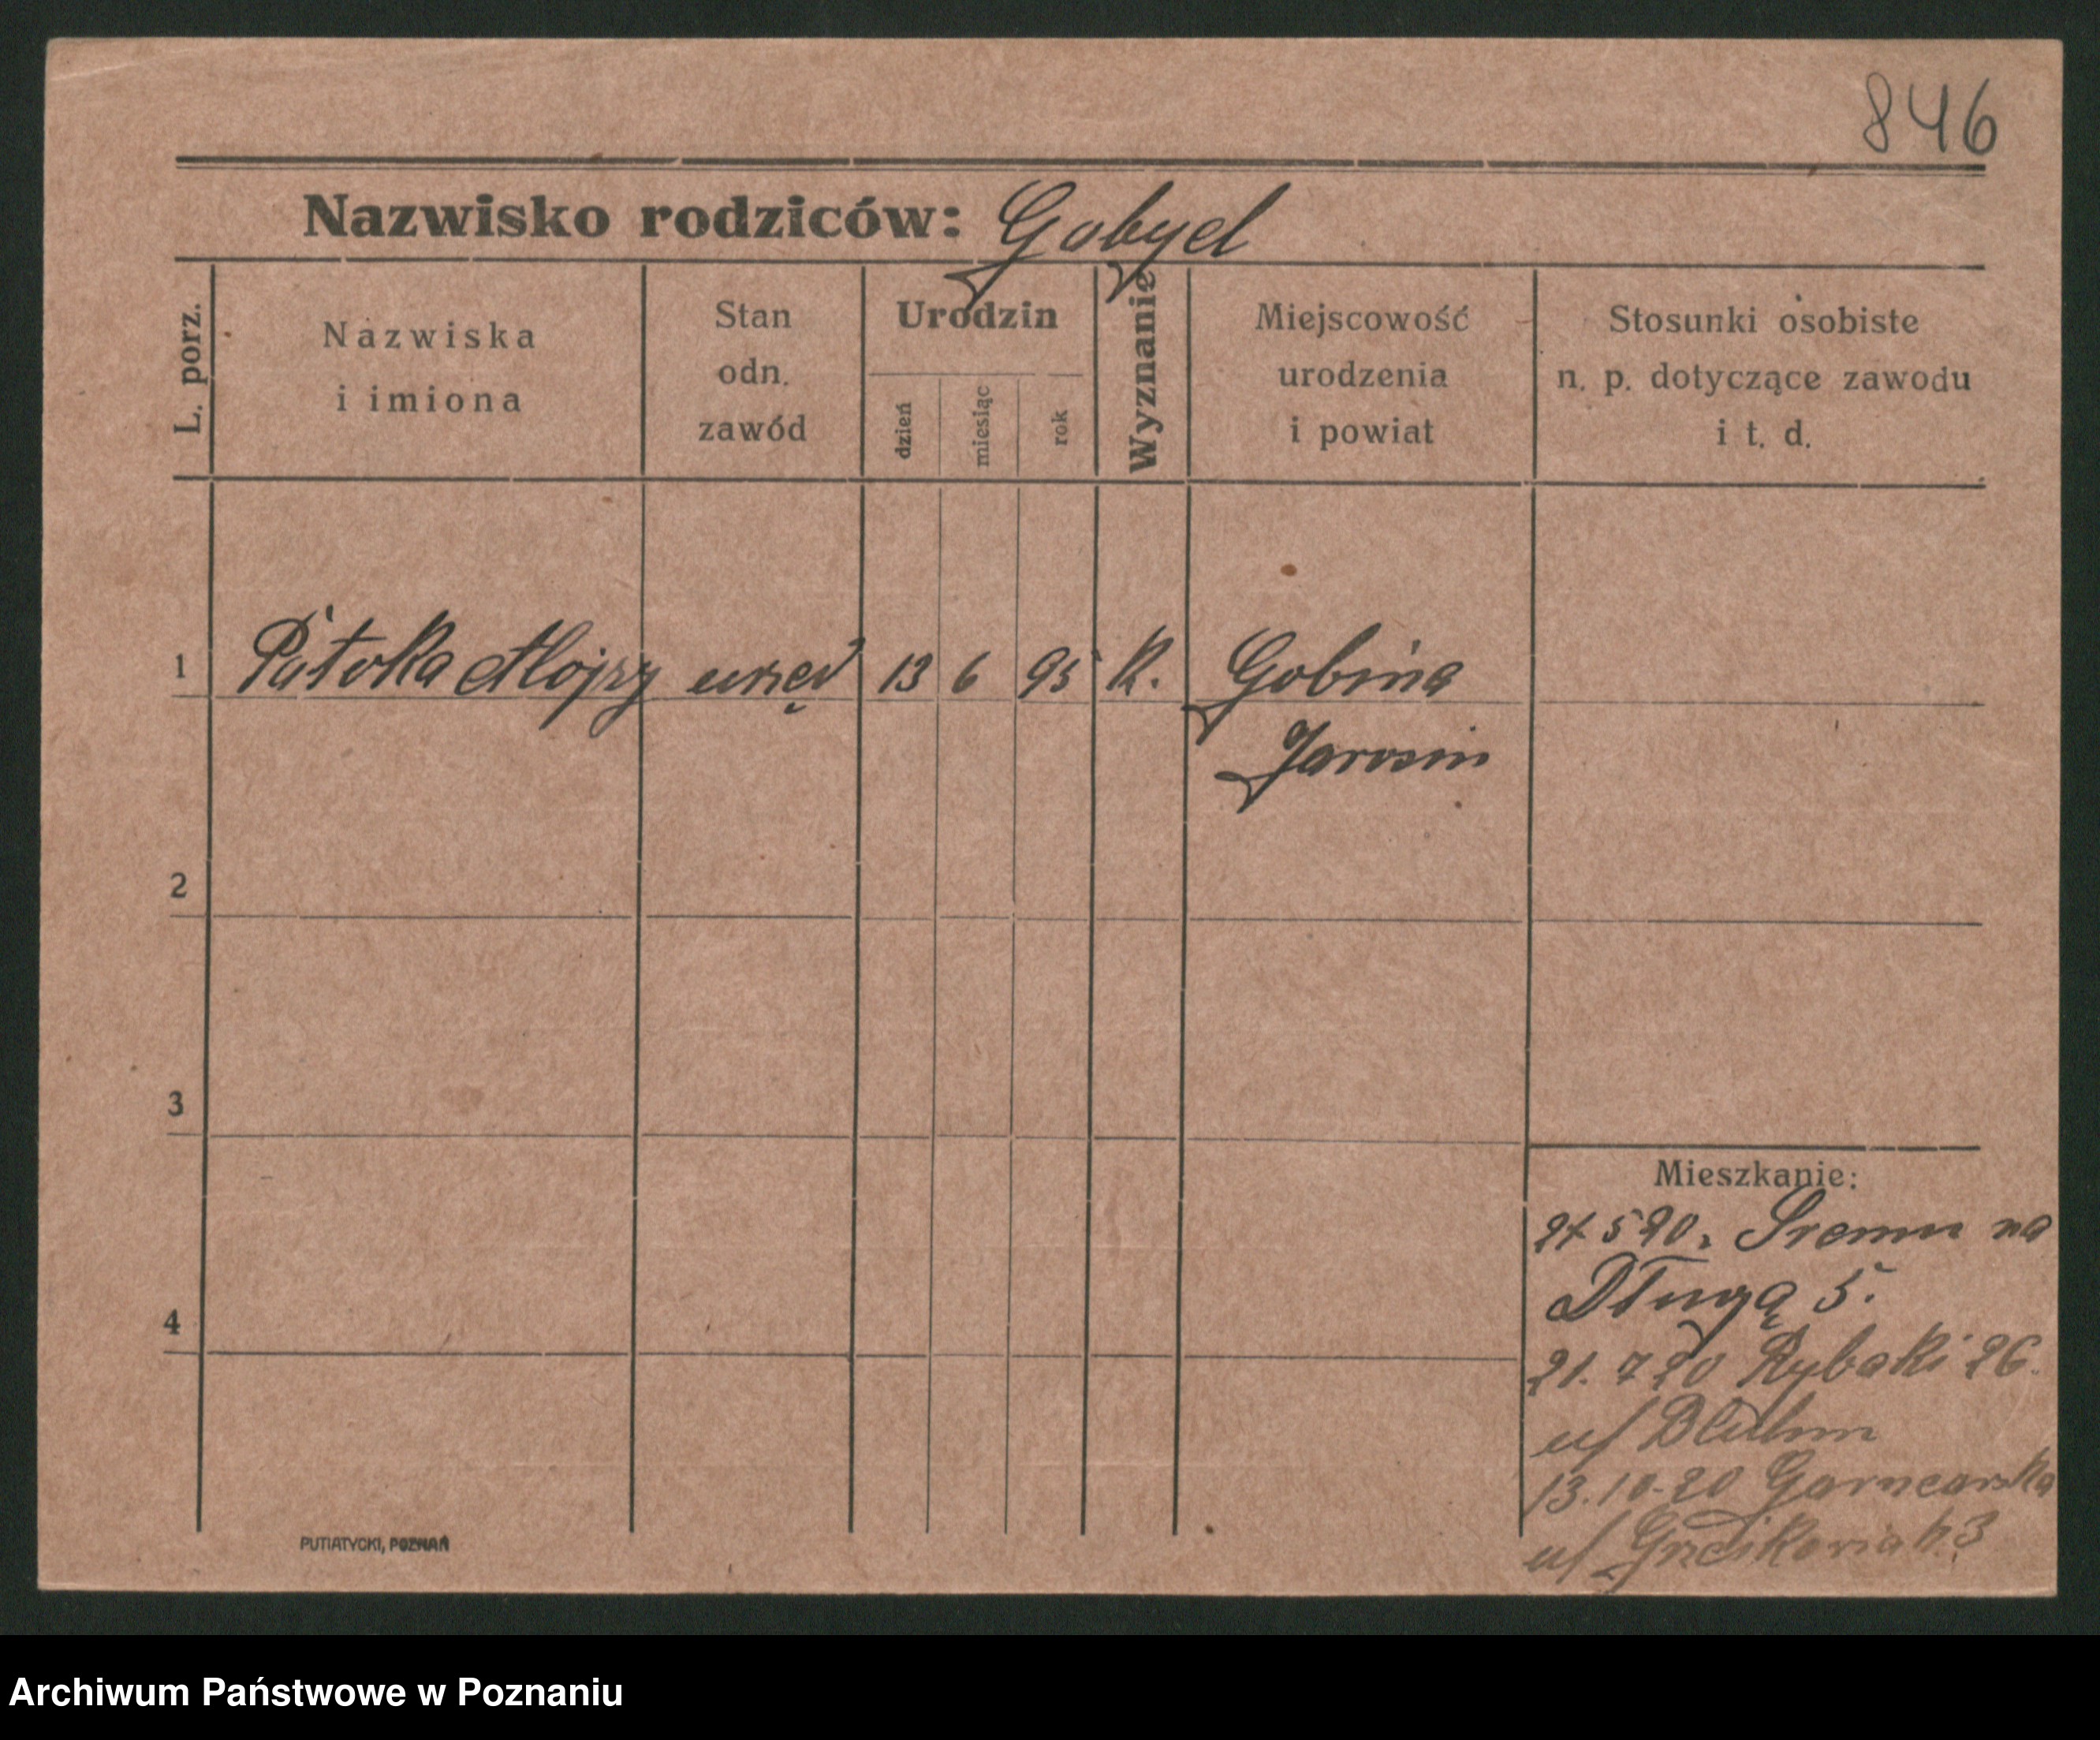 846
Nazwisko rodziców: Gobyel
L. porz.
Nazwiska
i imiona
Stan
odn.
zawód
Urodzin
dzień
miesiąc
rok
Wyznanie
Miejscowość
urodzenia
i powiat
Stosunki osobiste
n. p. dotyczące zawodu
i t. d.
1 Patoka Alojzy urzęd 13 6 95 K. Gobina
Jarosin
2
3
4
Mieszkanie:
5 20. Sremu na
Długą 5.
21. 7 20 Rybaki 26.
u/ Bluhm
13.10.20 Garncarska
u/ 3
PUTIATYCKI, POZNAŃ
Archiwum Państwowe w Poznaniu